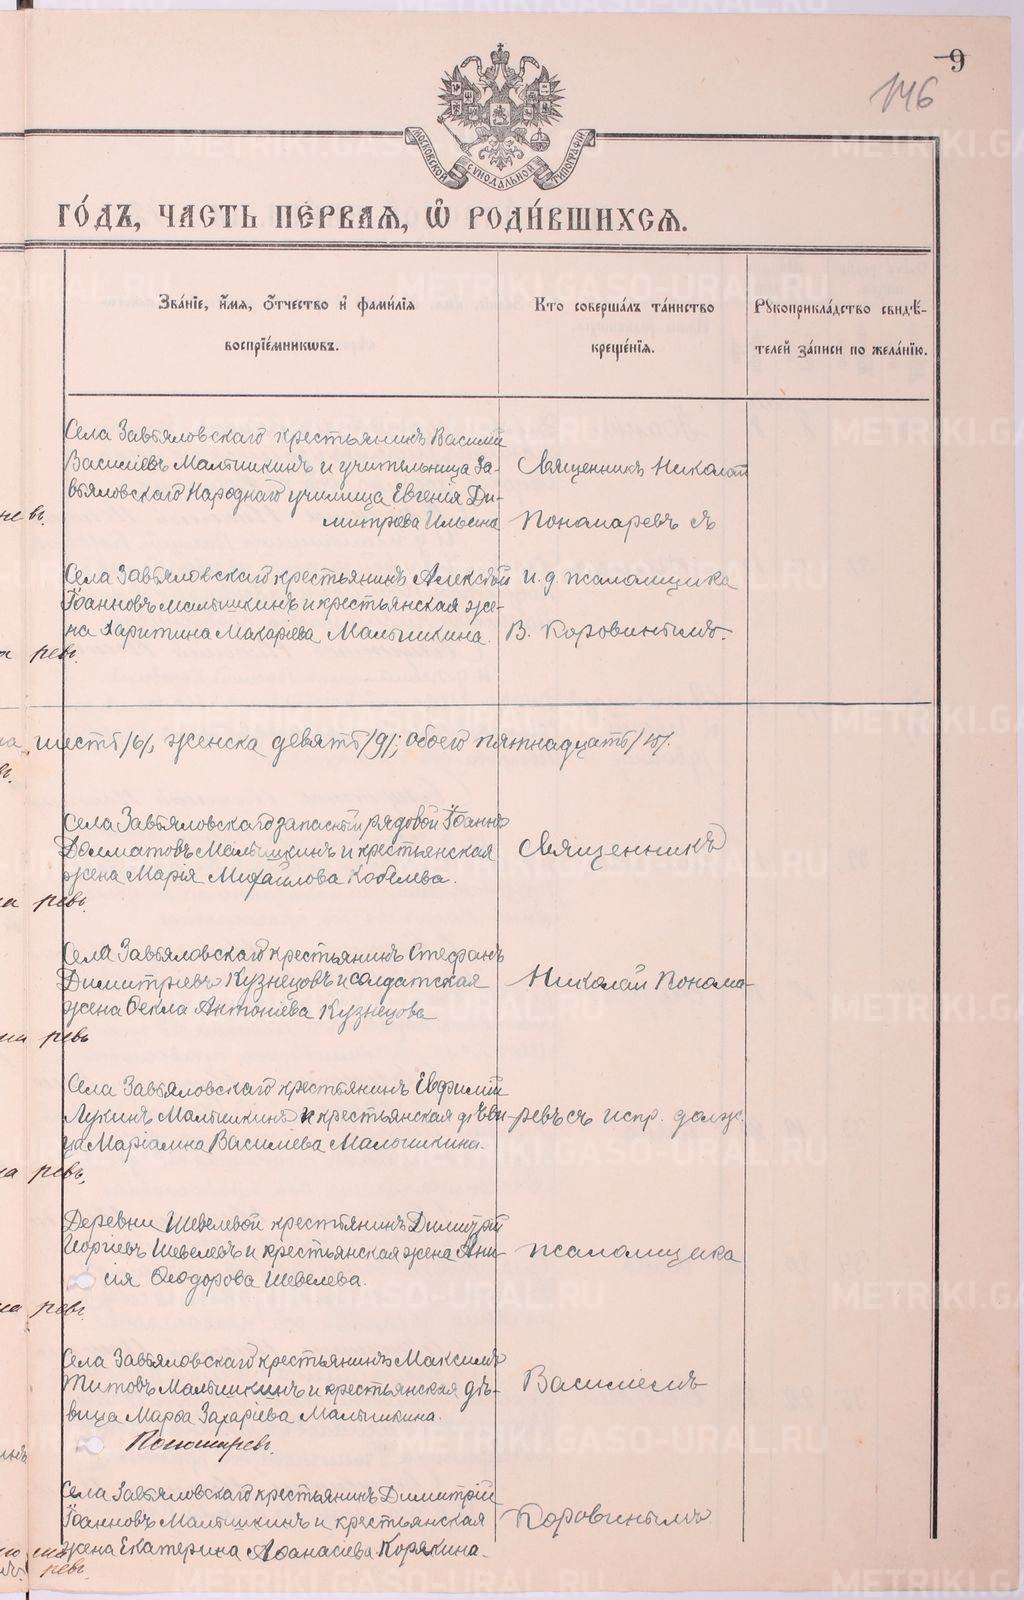 9
146
МОСКОВСКОЙ СѴНОДАЛЬНОЙ ТИПОГРАФІИ
ГО́ДЪ, ЧАСТЬ ПЕ́РВАѦ, Ѽ РОДИ́ВШИХСѦ.
Зва́нїе, и҆́мѧ, ѻ҆́тчество и҆ фами́лїѧ
воспрїе́мникѡвъ.
Кто соверша́лъ та́инство
креще́нїѧ.
Рꙋкоприкла́дство свидѣ́-
телей за́писи по жела́нїю.
Села Завьяловскаго крестьянинъ Василій
Василіевъ Малышкинъ и учительница За-
вьяловскаго Народнаго училища Евгенія Ди-
митріева Ильина
Священникъ Николай
Пономаревъ съ
Села Завьяловскаго крестьянинъ Алексѣй
Іоанновъ Малышкинъ и крестьянская же-
на Харитина Макаріева Малышкина.
и. д. псаломщика
В. Коровинымъ.
ревъ.
шесть /6/, женска девять /9/; обоего пятнадцать /15/.
Села Завьяловскаго запасный рядовой Іоаннъ
Долматовъ Малышкинъ и крестьянская
жена Марія Михайлова Кобелева.
Священникъ
ревъ.
Села Завьяловскаго крестьянинъ Стефанъ
Димитріевъ Кузнецовъ и солдатская
жена Ѳекла Антоніева Кузнецова
Николай Понома-
ревъ
Села Завьяловскаго крестьянинъ Евфимій
Лукинъ Малышкинъ и крестьянская дѣви-
ца Маріамна Василіева Малышкина.
ревъ съ испр. долж.
ревъ.
Деревни Шевелевой крестьянинъ Димитрій
Георгіевъ Шевелевъ и крестьянская жена Ани-
сія Ѳеодорова Шевелева.
псаломщика
ревъ
Села Завьяловскаго крестьянинъ Максимъ
Титовъ Малышкинъ и крестьянская дѣ-
вица Марѳа Захаріева Малышкина.
Василіемъ
Пономаревъ.
Села Завьяловскаго крестьянинъ Димитрій
Іоанновъ Малышкинъ и крестьянская
жена Екатерина Аѳанасіева Корякина.
Коровинымъ
ревъ.
METRIKI.GASO-URAL.RU